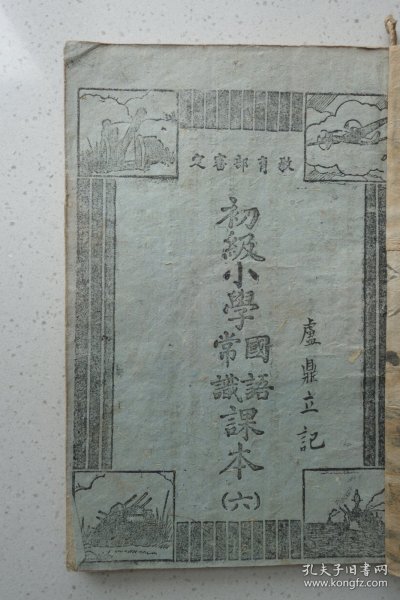 教育部審定
初級小學國語常識課本(六)
盧鼎立記
孔夫子旧书网
www.kongfz.com